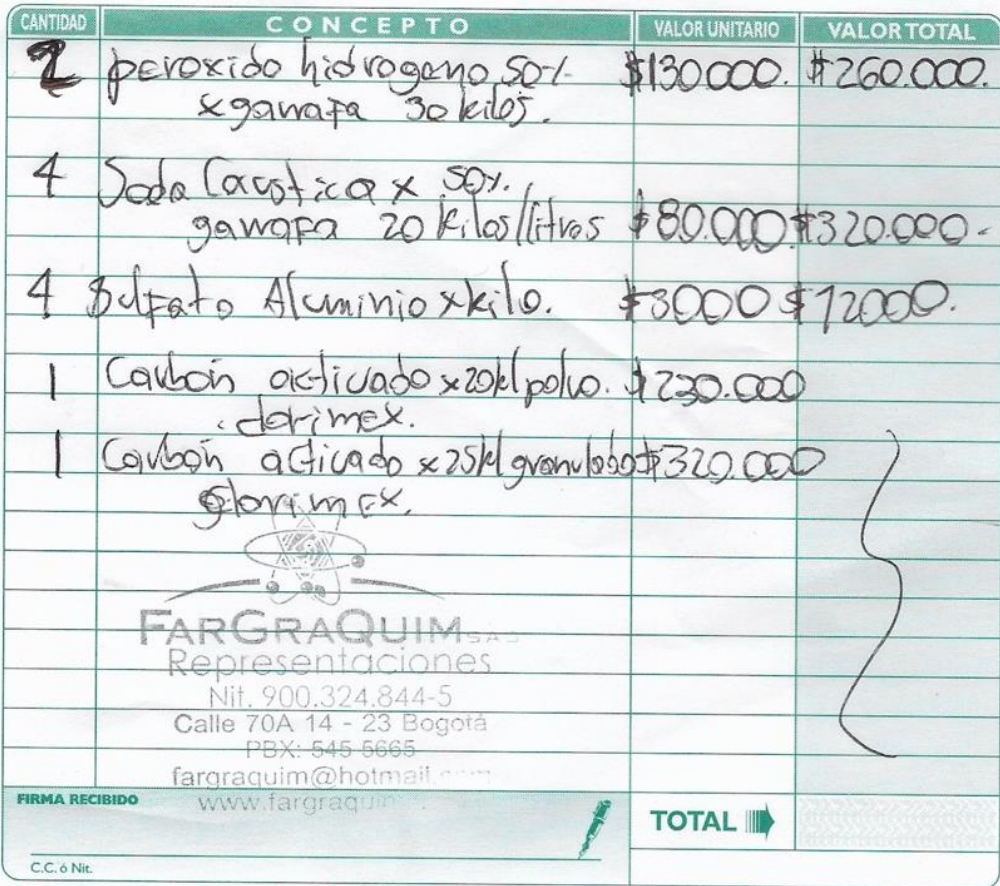 CANTIDAD CONCEPTO VALOR UNITARIO VALOR TOTAL
2 peroxido hidrogeno 50% $130.000. $260.000.
x garrafa 30 kilos.
4 Soda Caustica x 50%.
garrafa 20 kilos/litros $80.000 $320.000-
4 Sulfato Aluminio x kilo. $3000 $12000.
1 Carbón activado x 20kl polvo. $230.000
clarimex.
1 Carbón activado x 25kl granulado $320.000
clarimex.
FARGRAQUIM S.A.S
Representaciones
Nit. 900.324.844-5
Calle 70A 14 - 23 Bogotá
PBX: 545 5665
fargraquim@hotmail
www.fargraquim
FIRMA RECIBIDO
TOTAL
C.C. ó Nit.